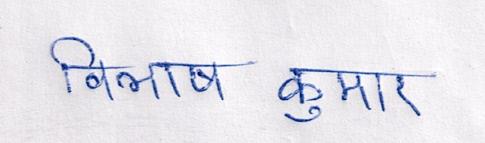 विभाष कुमार